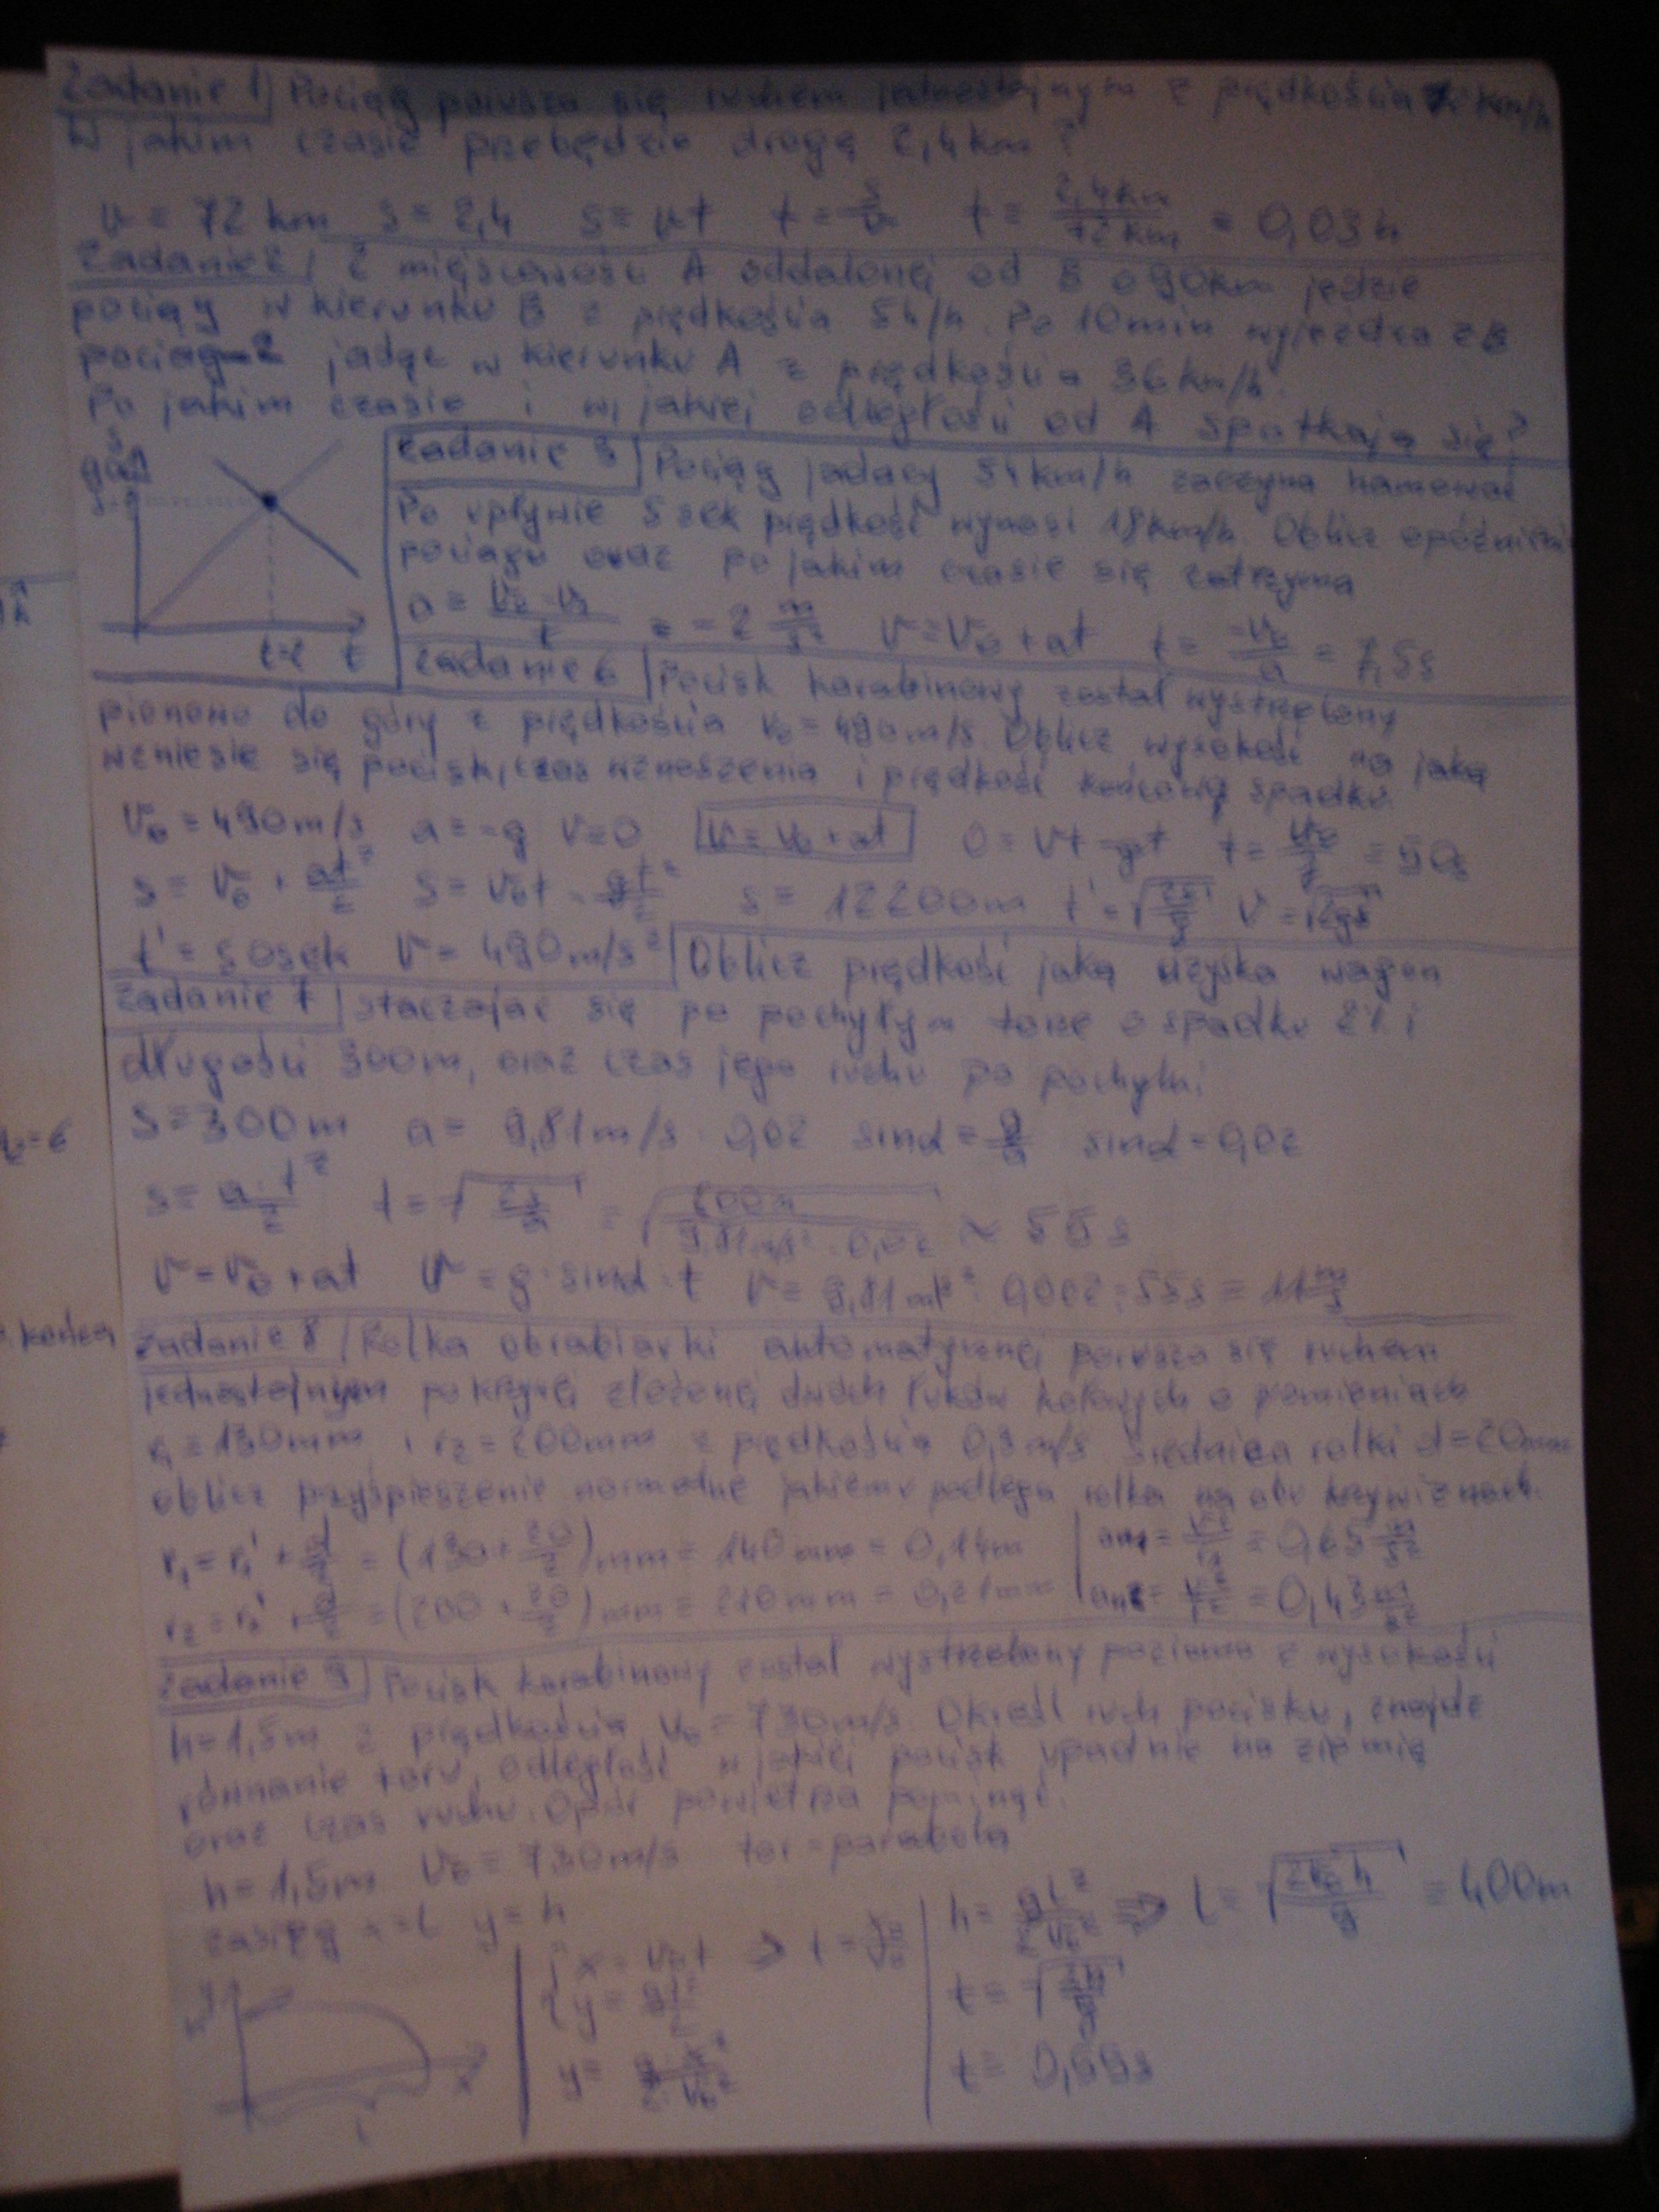 Zadanie 1 Pociąg porusza się ruchem jednostajnym z prędkością km/h
W jakim czasie przebędzie drogę 2,4km?
v = 72 km s = 2,4 s = vt t = s/v t = 2,4km/72km = 0,03h
Zadanie 2 Z miejscowości A oddalonej od B o 90km jedzie
pociąg w kierunku B z prędkością 54/h. Po 10min wyjeżdża z B
pociąg 2 jadąc w kierunku A z prędkością 36km/h.
Po jakim czasie i w jakiej odległości od A spotkają się?
s
t=? t
Zadanie 3 Pociąg jadący 54km/h zaczyna hamować
Po upływie 5sek prędkość wynosi 18km/h. Oblicz
pociągu oraz po jakim czasie się zatrzyma
= -2 m/s² v = v₀ + at t = -v₀/a = 7,5s
Zadanie 6 Pocisk karabinowy został wystrzelony
pionowo do góry z prędkością v₀ = 490m/s. Oblicz wysokość na jaką
wzniesie się pocisk, czas wznoszenia i prędkość końcową spadku.
v₀ = 490m/s a = -g v = 0 v = v₀ + at 0 = vt - gt t = v₀/g = 50s
s = v₀ + at²/2 s = v₀t - gt²/2 s = 12200m t' = √2s/g v = √2gs
t' = 50sek v = 490m/s²
Zadanie 7 Oblicz prędkość jaką uzyska wagon
staczając się po pochyłym torze o spadku 2% i
długości 300m, oraz czas jego ruchu po pochylni
S = 300m a = 9,81m/s · 0,02 sinα = sinα = 0,02
s = a·t²/2 t = √2s/a = √ / 9,81m/s² · 0,02 ≈ s
v = v₀ + at v = g·sinα·t v = 9,81 · · 55s = 11 m/s
Zadanie 8 Rolka obrabiarki automatycznej porusza się ruchem
jednostajnym po krzywej złożonej dwóch łuków kołowych o promieniach
r₁ = 130mm, i r₂ = 200mm z prędkością 0,3m/s średnica rolki d = 20mm
oblicz przyśpieszenie normalne jakiemu podlega rolka na obu krzywiznach.
r₁ = r₁' + d/2 = (130 + 20/2)mm = 140mm = 0,14m an₁ = v²/r₁ = 0,65 m/s²
r₂ = r₂' + d/2 = (200 + 20/2)mm = 210mm = 0,21mm an₂ = v²/r₂ = 0,43 m/s²
Zadanie 9 Pocisk karabinowy został wystrzelony poziomo z wysokości
h = 1,5m z prędkością v₀ = 730m/s. Określ ruch pocisku, znajdź
równanie toru, odległość w jakiej pocisk upadnie na ziemię
oraz czas ruchu. Opór powietrza pominąć.
h = 1,5m v₀ = 730m/s tor = parabola
zasięg x = l y = h
x = v₀t ⇒ t = x/v₀
y = gt²/2
y =
h = gl²/2v₀² ⇒ l = √2v₀²h/g = 400m
t = √2h/g
t = 0,55s
y
x
l
końca